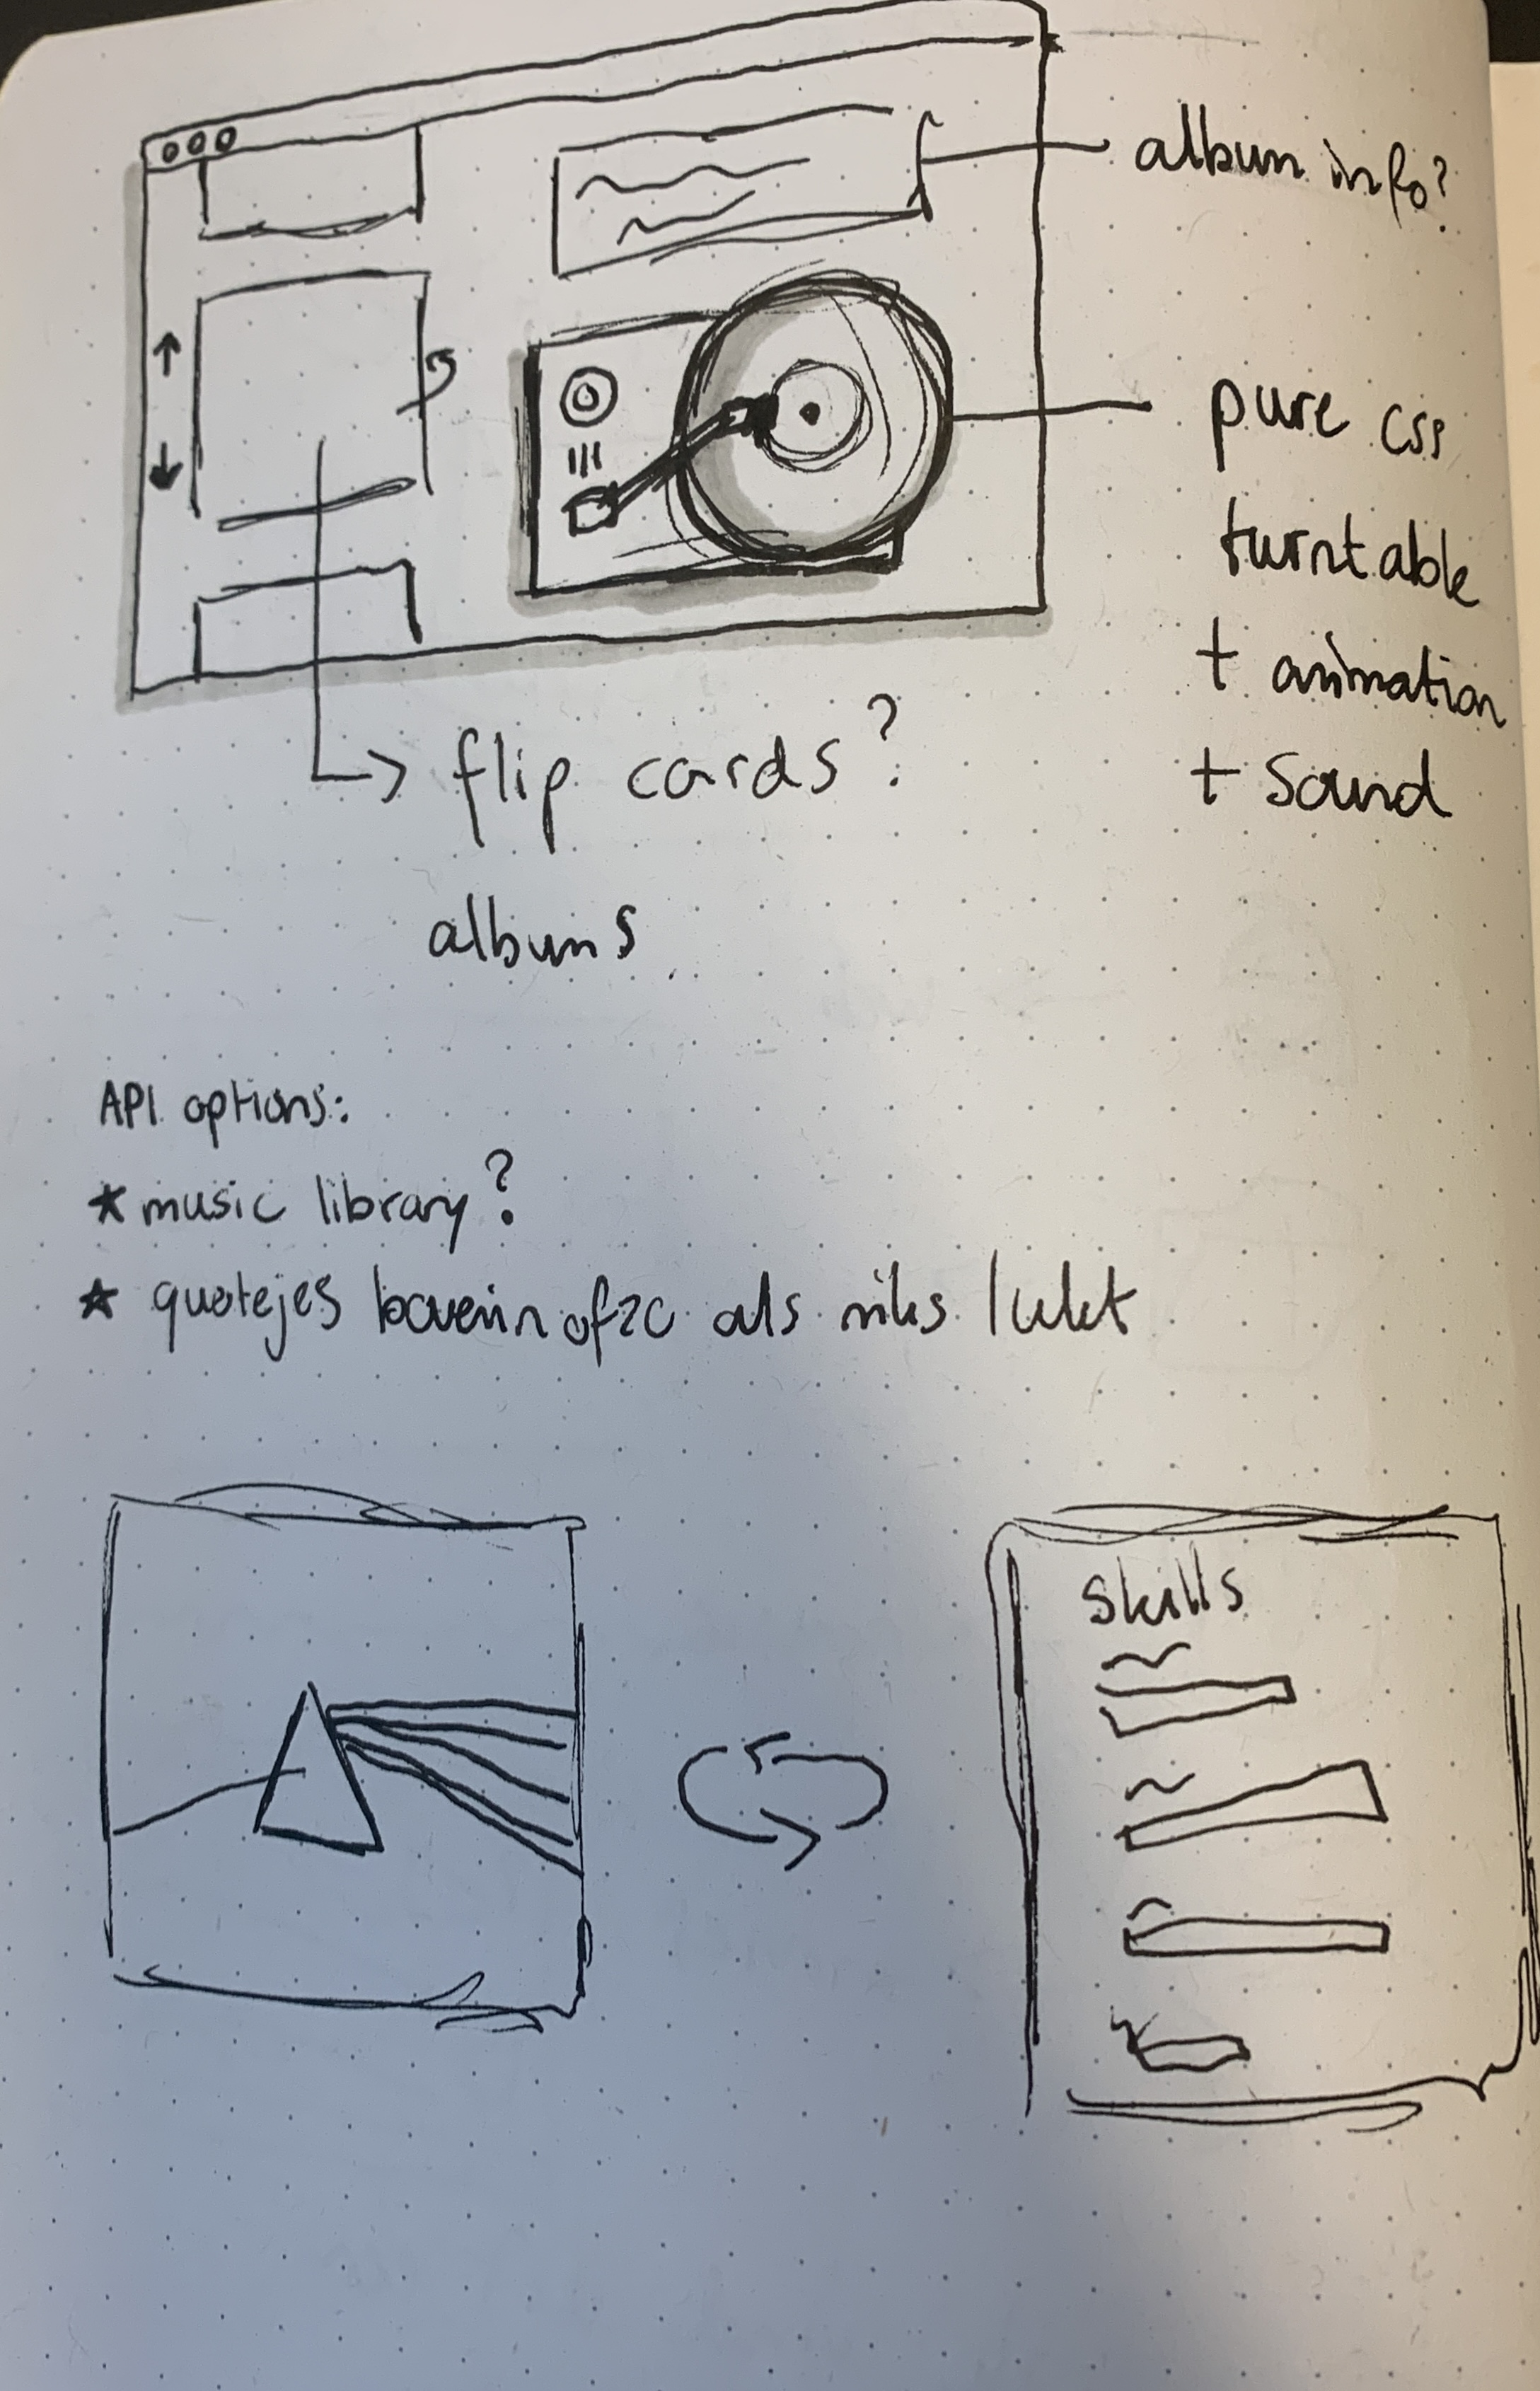 album info?
pure css
turntable
+ animation
+ sound
flip cards?
albums
API options:
* music library?
* quotejes bovenin ofzo als niks lukt
Skills